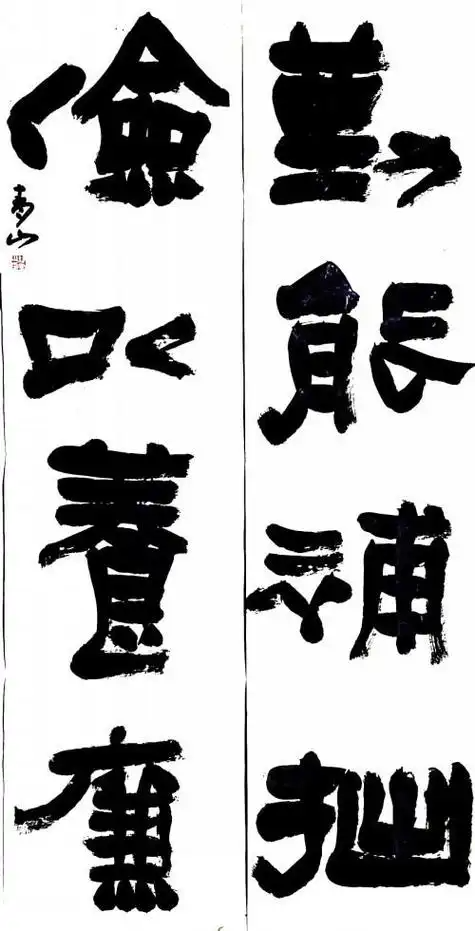 勤能補拙
儉以養廉
青山